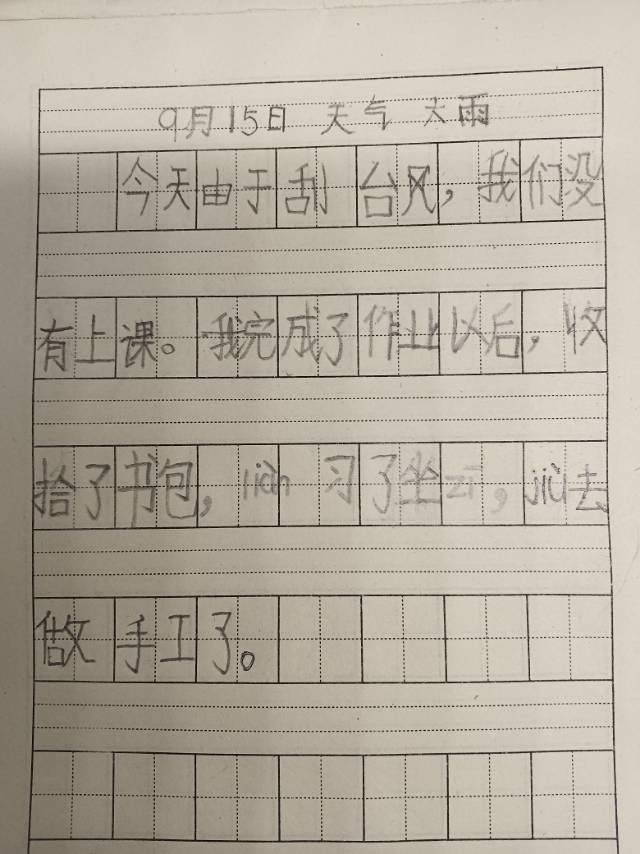 9月15日 天气 大雨
今天由于刮台风，我们没
有上课。我完成了作业以后，收
拾了书包，liàn习了坐zī，jiù去
做手工了。